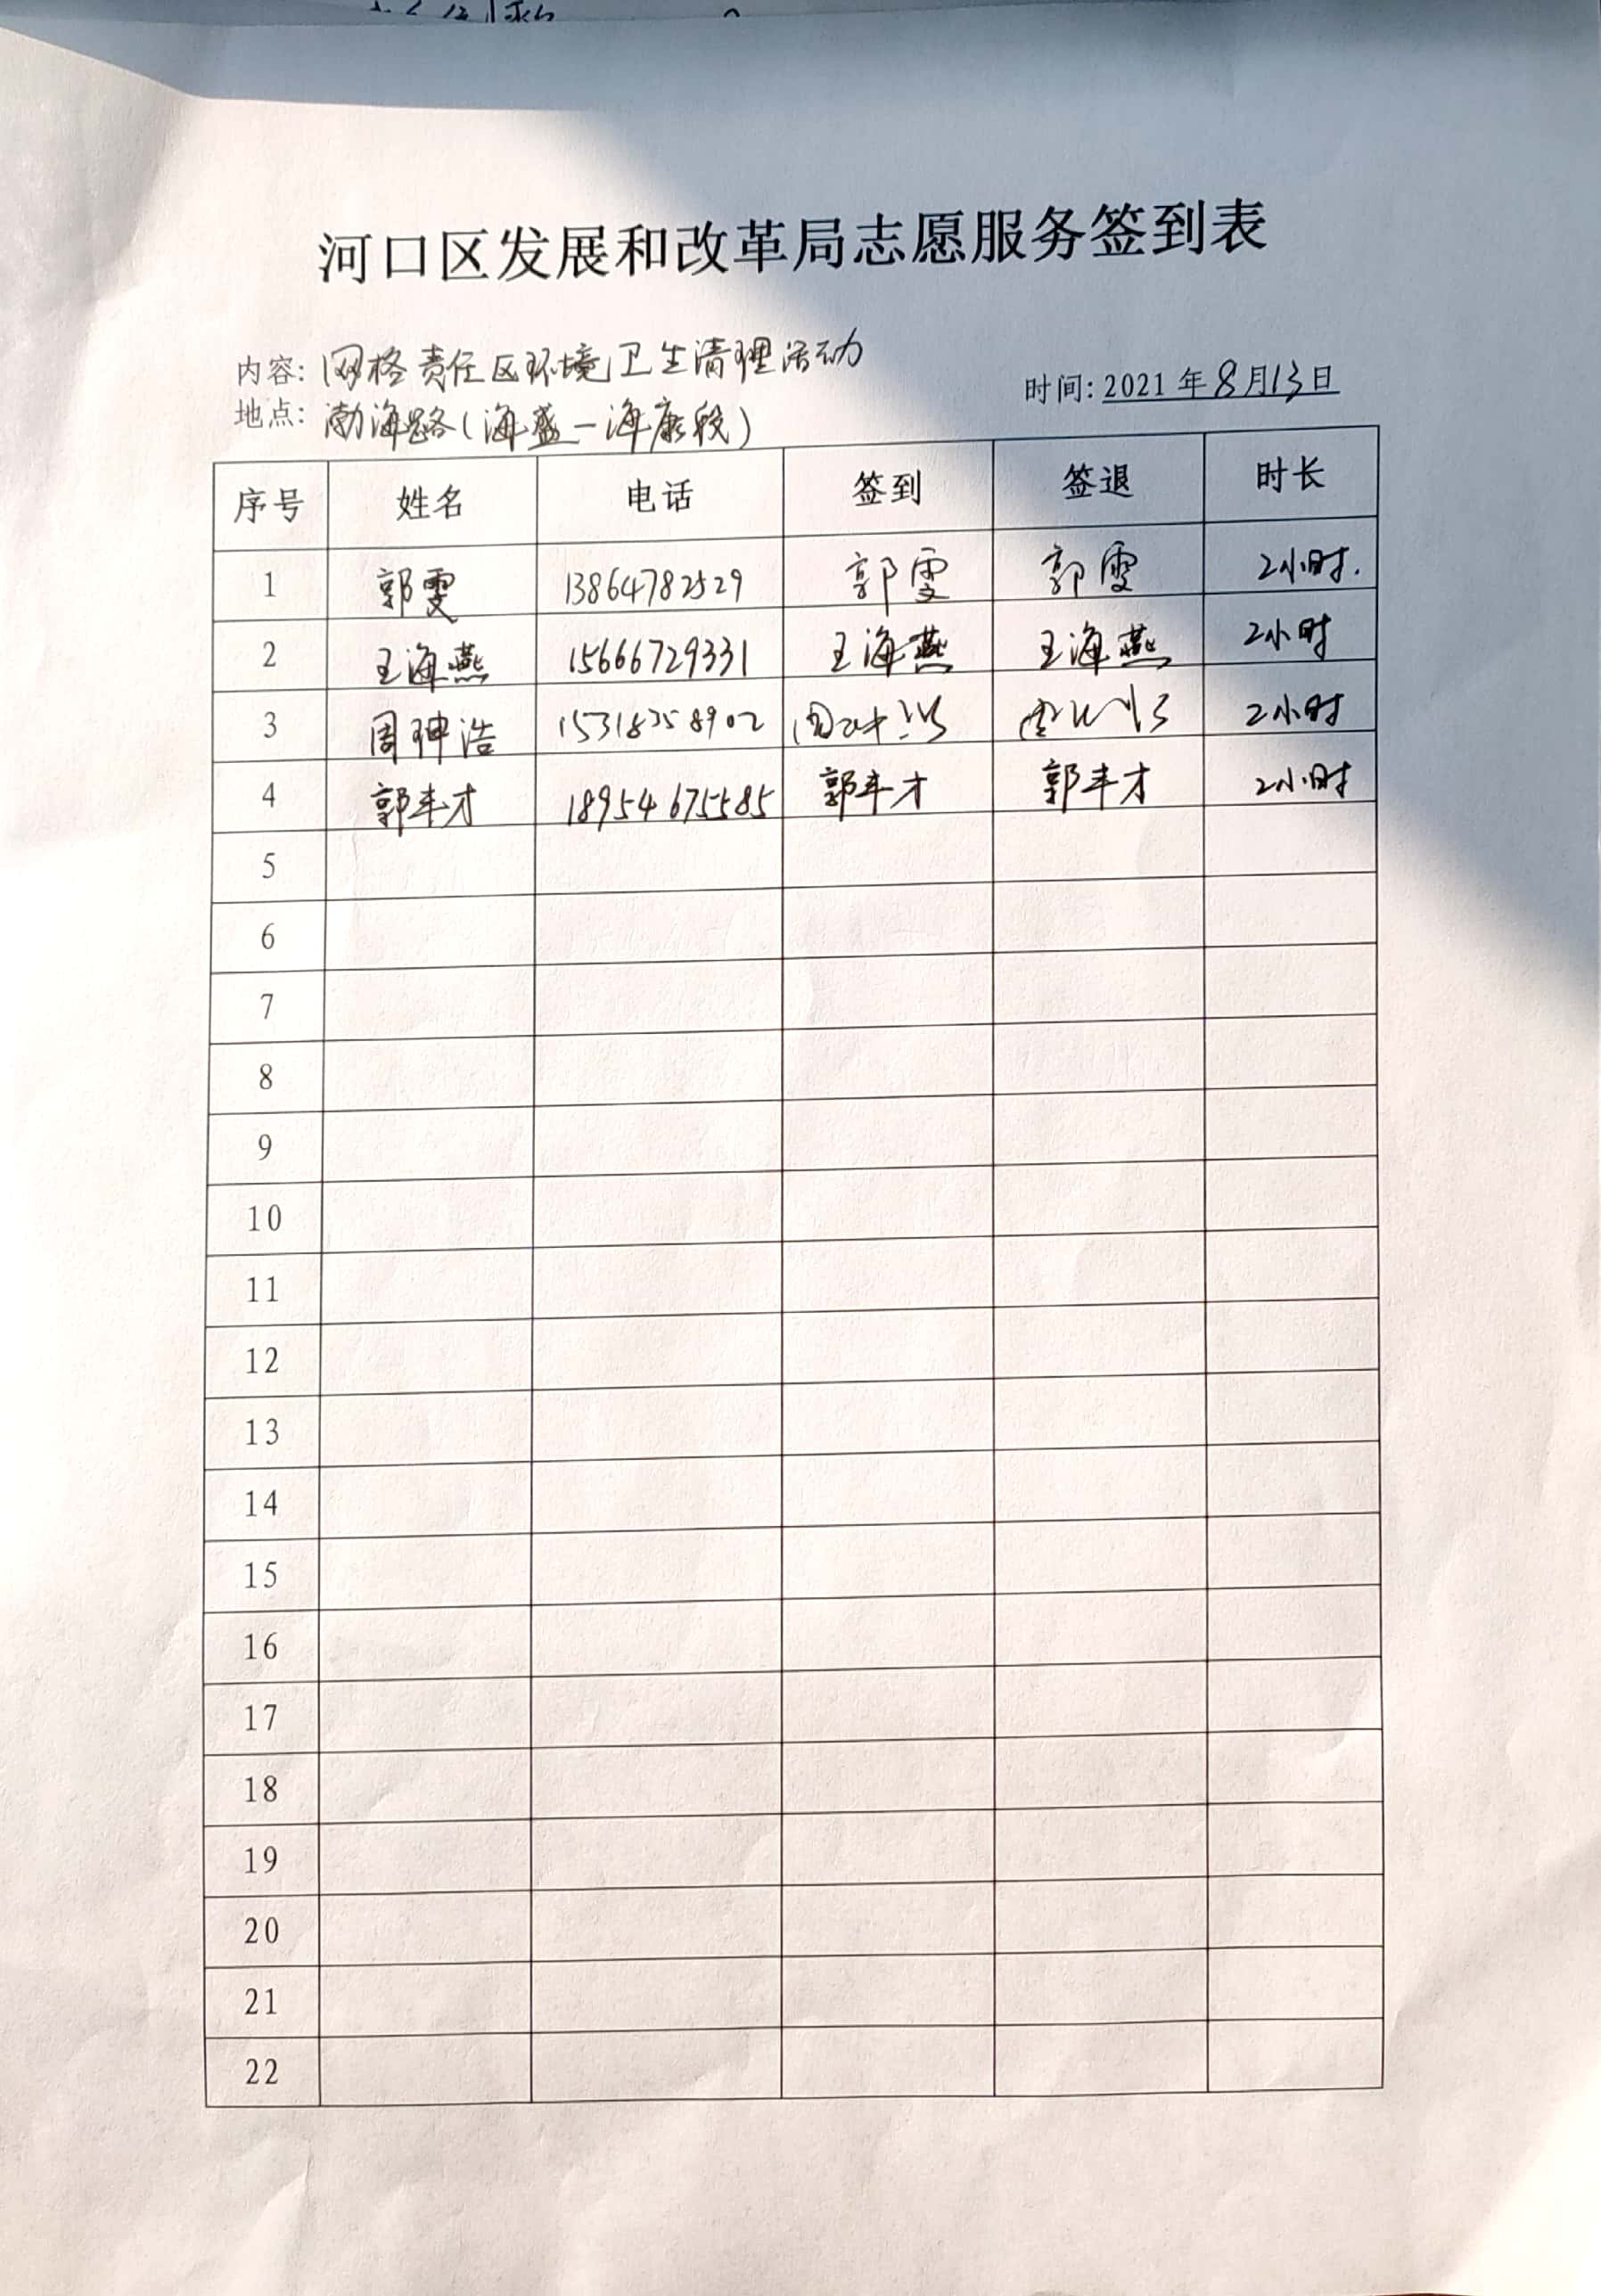 河口区发展和改革局志愿服务签到表
内容: 网格责任区环境卫生清理活动
时间: 2021年8月13日
地点: 渤海路(海盛—海康段)
序号 姓名 电话 签到 签退 时长
1 郭雯 13864782529 郭雯 郭雯 2小时.
2 王海燕 15666729331 王海燕 王海燕 2小时
3 周珅浩 15318258902 2小时
4 郭丰才 18954675585 郭丰才 郭丰才 2小时
5
6
7
8
9
10
11
12
13
14
15
16
17
18
19
20
21
22